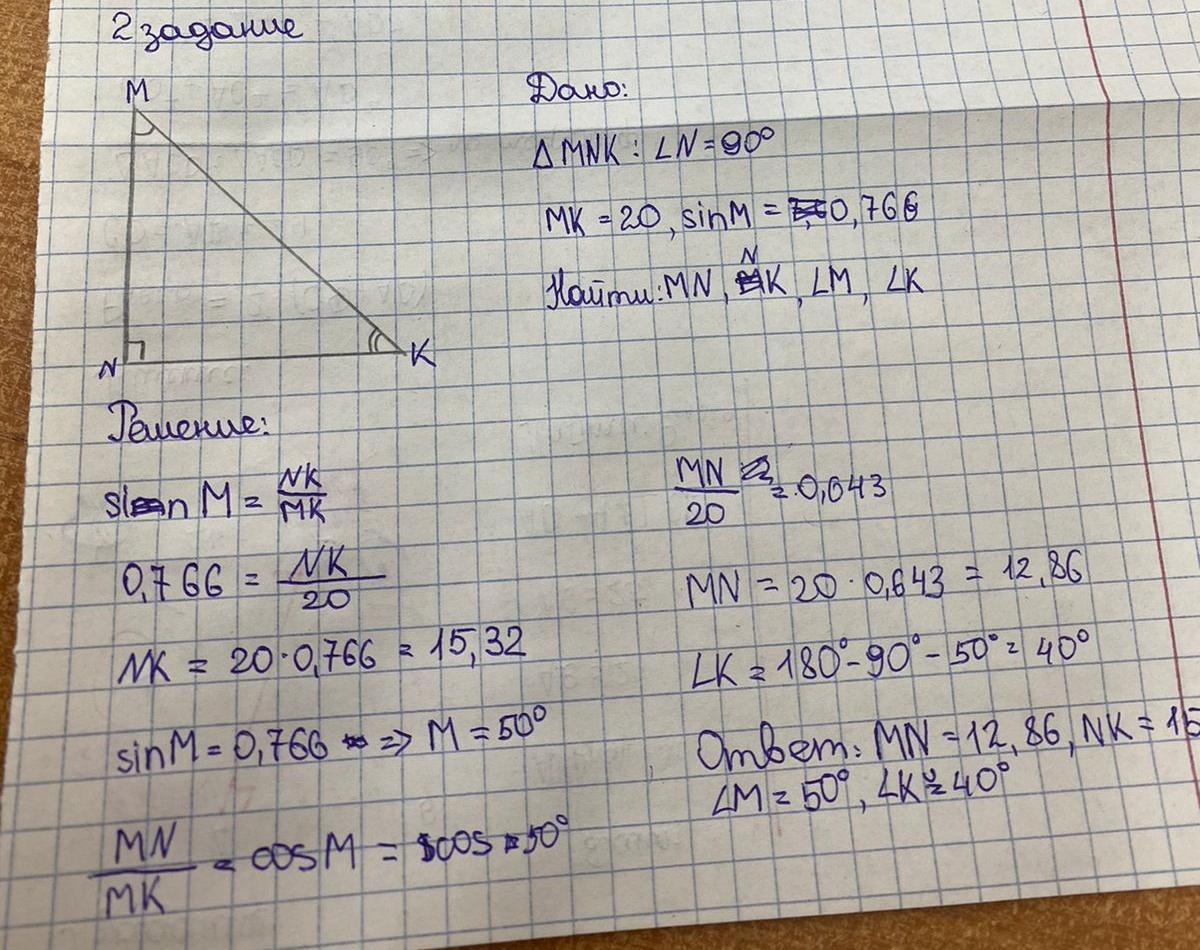 2 задание
M
N
K
Дано:
Δ MNK : ∠N = 90°
MK = 20, sinM = 0,766
Найти: MN, NK, ∠M, ∠K
Решение:
sin M = NK/MK
0,766 = NK/20
NK = 20·0,766 = 15,32
sinM = 0,766 => M = 50°
MN/MK = cos M = cos 50°
MN/20 = 0,643
MN = 20 · 0,643 = 12,86
∠K = 180° - 90° - 50° = 40°
Ответ: MN = 12,86, NK = 15
∠M = 50°, ∠K = 40°